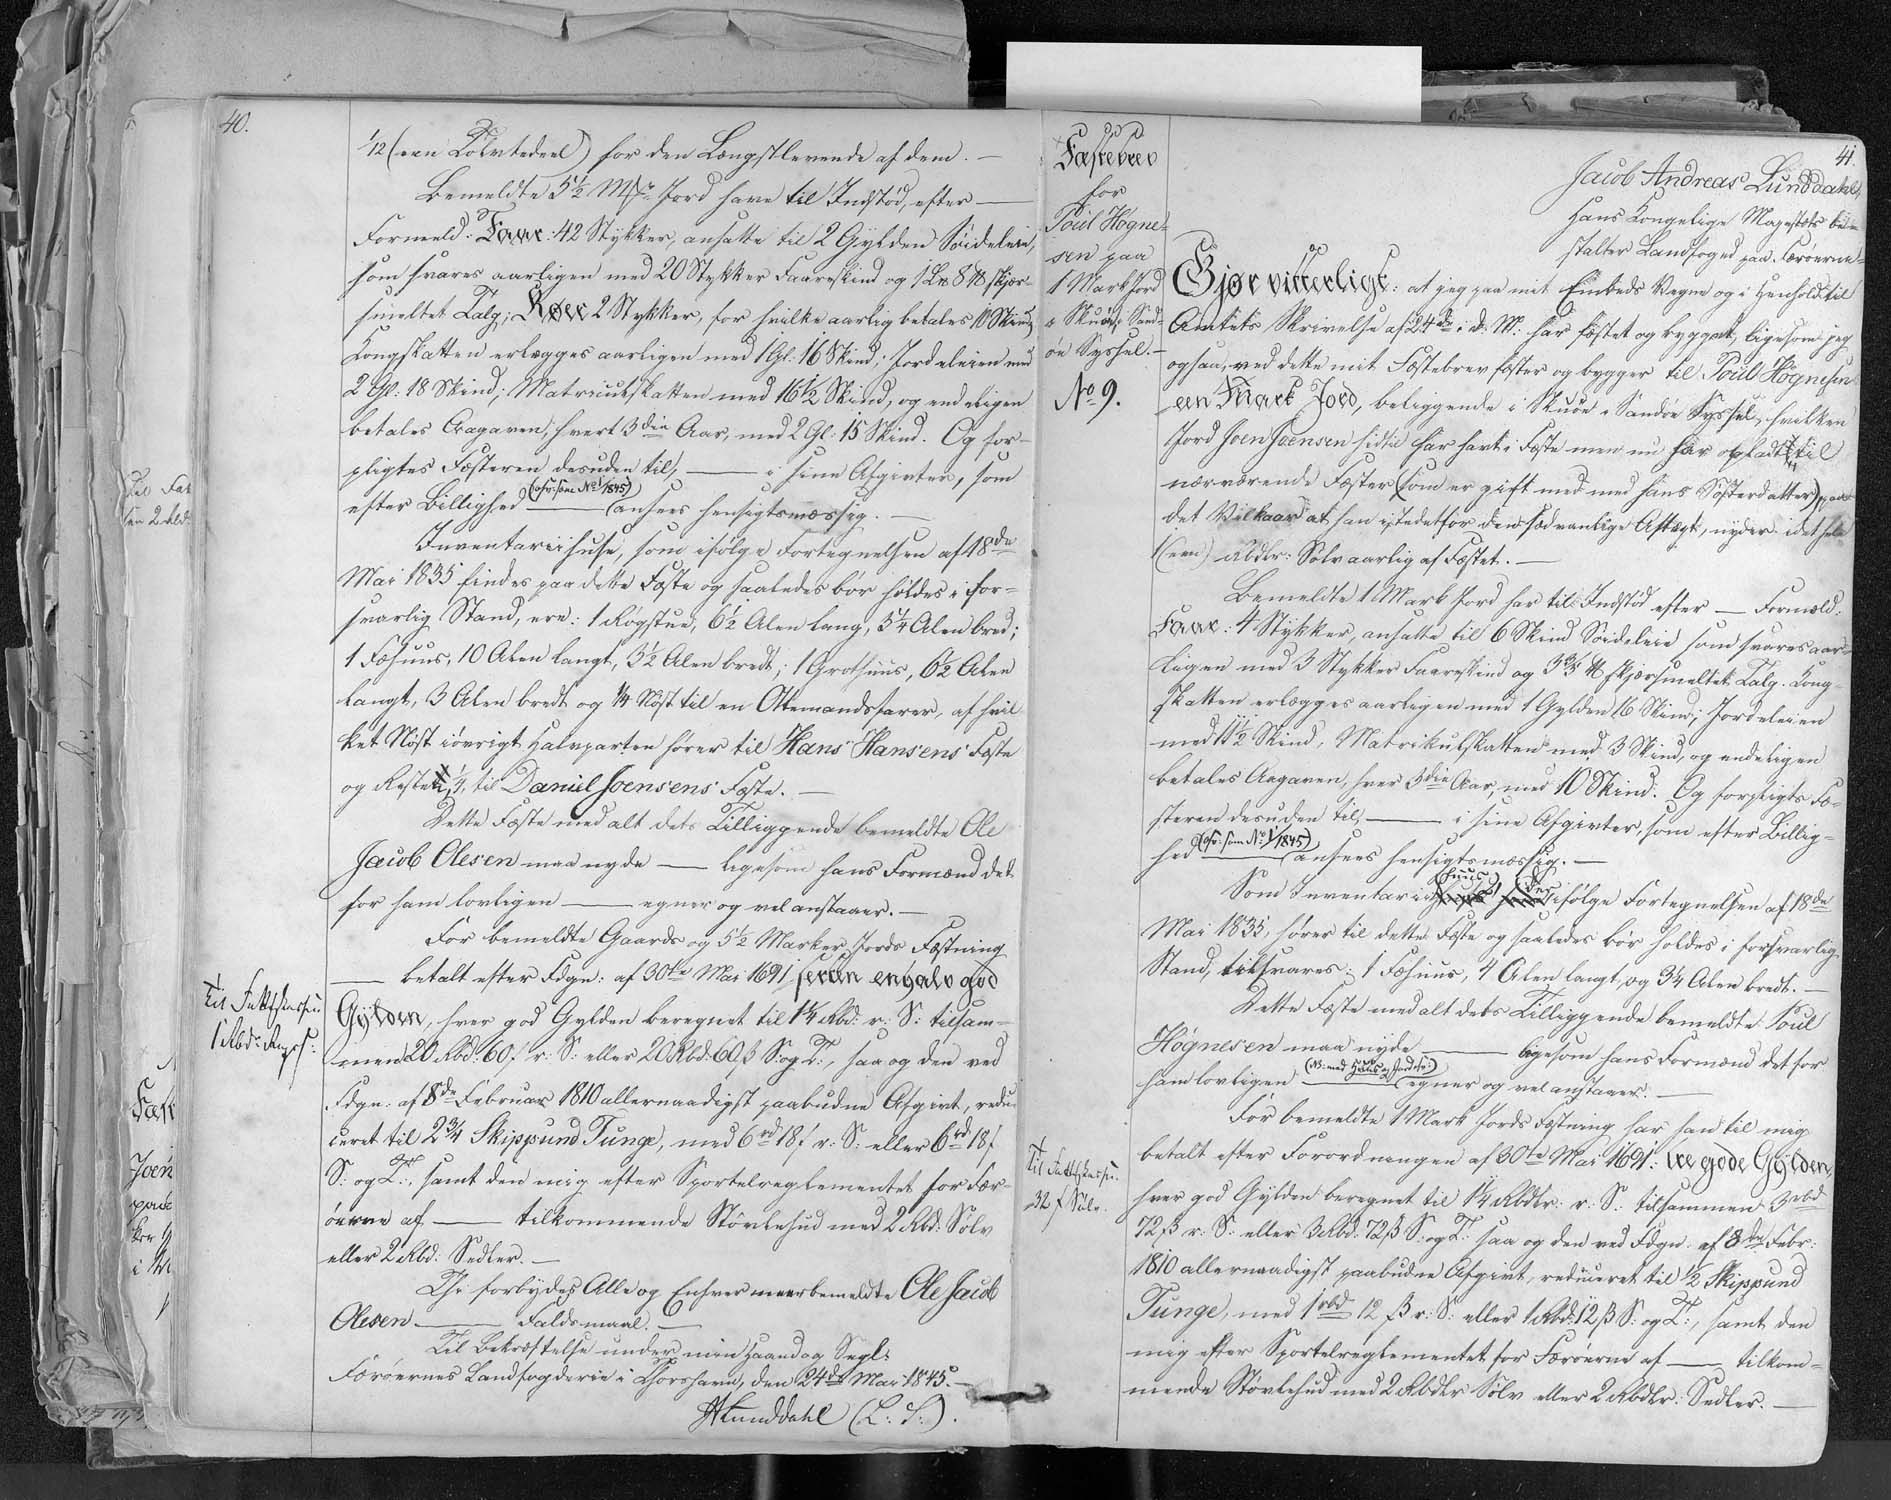 40.
1/12 (een Tolvtedeel) for den Længstlevende af dem. —
Bemeldte 5½ Mk Jord have til Indstød, efter —
Formeld: Faar: 42 Stykker, ansatte til 2 Gylden Söideleie,
som svares aarligen med 20 Stykker Faareskind og 1 L℔ 8 ℔ skjær-
smeltet Talg; Køer 2 Stykker, for hvilke aarlig betales 10 Skind;
Kongskatten erlægges aarligen med 1 Gl: 16 Skind; Jordeleien med
2 Gl: 18 Skind; Matriculskatten med 16½ Skind, og endeligen
betales Aagaven, hvert 3die Aar, med 2 Gl: 15 Skind. Og for-
pligtes Fæsteren desuden til, — i sine Afgivter, som
efter Billighed (ofv: som No 1/1845) ansees hensigtsmæssig. —
Inventariihuse, som ifølge Fortegnelsen af 18de
Mai 1835 findes paa dette Fæste og saaledes bør holdes i for-
svarlig Stand, ere: 1 Røgstue, 6½ Alen lang, 5¼ Alen bred;
1 Fæhuus, 10 Alen langt, 3½ Alen bredt; 1 Grothuus, 6½ Alen
langt, 3 Alen bredt og ¼ Nöst til en Ottemandsfarer, af hvil-
ket Nöst iövrigt Halvparten hører til Hans Hansens Fæste
og Resten, ¼, til Daniel Joensens Fæste. —
Dette Fæste med alt dets Tilliggende bemeldte Ole
Jacob Olesen maa nyde — ligesom hans Formænd det
for ham lovligen — egner og vel anstaaer. —
For bemeldte Gaards og 5½ Marker Jords Fæstning
— betalt efter Fdgn: af 30te Mai 1691 sexten en halv god
Gylden, hver god Gylden beregnet til 1¼ Rbd: r: S: tilsam-
men 20 Rbd: 60 ß r: S: eller 20 Rbd: 60 ß S: og T:, saa og den ved
Fdgn: af 8de Februar 1810 allernaadigst paabudne Afgivt, redu-
ceret til 2¾ Skippund Tunge, med 6 rd 18 ß r: S: eller 6 rd 18 ß
S: og T:, samt den mig efter Sportelreglementet for Fær-
öerne af — tilkommende Stövlehud med 2 Rbd: Sølv
eller 2 Rbd: Sedler. —
Thi forbydes Alle og Enhver meerbemeldte Ole Jacob
Olesen — Faldsmaal. —
Til Bekræftelse under min Haand og Segl.
Færöernes Landfogderie i Thorshavn, den 24de Mai 1845. —
HLunddahl (L: S:).
Til Fattigkassen
1 Rbd:
41.
Fæstebrev
for
Poul Høgne-
sen paa
1 Mark Jord
i Skuö i Sand-
öe Syssel. —
No 9.
Jacob Andreas Lunddahl,
Hans Kongelige Majestæts be-
stalter Landfoged paa Færöerne
Gjør vitterligt: at jeg paa mit Embeds Vegne og i Henhold til
Amtets Skrivelse af 24de i d: M: har fæstet og bygget, ligesom jeg
ogsaa, ved dette mit Fæstebrev fæster og bygger til Poul Högnesen
een Mark Jord, beliggende i Skuöe i Sandöe Syssel, hvilken
Jord Joen Joensen hidtil har havt i Fæste men nu har opladt til
nærværende Fæster (som er gift med med hans Søsterdatter), paa
det Vilkaar at han istedetfor den sædvanlige Aftægt, nyder idethele
1 (een) Rbdlr: Sølv aarlig af Fæstet. —
Bemeldte 1 Mark Jord har til Indstød efter — Formeld:
Faar: 4 Stykker, ansatte til 6 Skind Söideleie som svares aar-
ligen med 3 Stykker Faareskind og 3¾ ℔ skjærsmeltet Talg. Kong-
skatten erlægges aarligen med 1 Gylden 16 Skind; Jordeleien
med 11½ Skind, Matrikulskatten med 3 Skind, og endeligen
betales Aagaven, hver 3die Aar, med 10 Skind. Og forpligts Fæ-
steren desuden til, — i sine Afgivter, som efter Billig-
hed (ofv: som No 1/1845) ansees hensigtsmæssig. —
Som Inventarii(huus) (der) ifølge Fortegnelsen af 18de
Mai 1835, hører til dette Fæste og saaledes bør holdes i forsvarlig
Stand, tilsvares: 1 Fæhuus, 4 Alen langt, og 3¼ Alen bredt. —
Dette Fæste med alt dets Tilliggende bemeldte Poul
Høgnesen maa nyde — ligesom hans Formænd det for
ham lovligen egner og vel anstaaer. —
For bemeldte 1 Mark Jords Fæstning har han til mig
betalt efter Forordningen af 30te Mai 1691: tre gode Gylden,
hver god Gylden beregnet til 1¼ Rbdlr: r: S: tilsammen 3 rbd
72 ß r: S: eller 3 Rbd: 72 ß S: og T: saa og den ved Fdgn: af 8de Febr:
1810 allernaadigst paabudne Afgivt, reduceret til ½ Skippund
Tunge, med 1 rbd 12 ß r: S: eller 1 Rbd: 12 ß S: og T:, samt den
mig efter Sportelreglementet for Færöerne af — tilkom-
mende Stövlehud med 2 Rbdlr Sølv eller 2 Rbdlr: Sedler. —
Til Fattigkassen
32 ß Sølv.